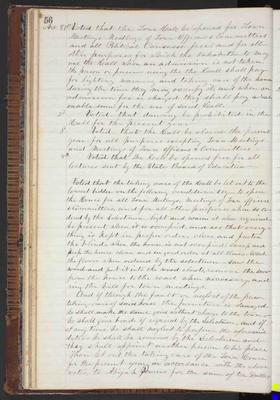 56
Voted that the Town Hall be opened for Town
Meetings, Meetings of Town Officers & Committees
and all Political Caucuses free and for all
other purposes for which the
use the Hall when an admission is not taken
the person or persons using the Hall shall pay
for lighting, warming and taking care of the same
during the time they may occupy it, and when an
admission fee is charged they shall pay a reas-
onable sum for the use of said Hall.
2d Voted, that dancing be prohibited in the
Hall for the present year.
Voted, that the Hall be closed the present
year for all purposes excepting Town Meetings
and Meetings of Town Officers & Committees
Voted that the Hall be opened free for all
lectures sent by the State Board of Education
Voted, the taking care of the Hall be let out to the
lowest bidder on the following conditions viz. to open
the House for all Town Meetings, Meetings of Town Officers
& Committees and for all other purposes when so or-
dered by the Selectmen, light and warm it when required
be present when it is occupied, and see that every-
thing is kept in proper order, close and fasten
the blinds when the house is not occupied, sweep and
keep the house clean and in good order at all times, wash
the floors when ordered by the selectmen, saw the
wood and put it into the wood closet, remove the snow
from the house to the road when necessary and
ring the bell for town meetings.
And if through the fault or neglect of the person
taking care of said house the furniture is damaged
he shall make the same good without charge to the town
he shall give bonds if required by the Selectmen, and if
at any time he shall neglect to perform the aforesaid
duties he shall be removed by the Selectmen and
they shall appoint another person to his place.
Then let out the taking care of the Town House
for the present year in accordance with the above
votes to for the sum of ten Dollars